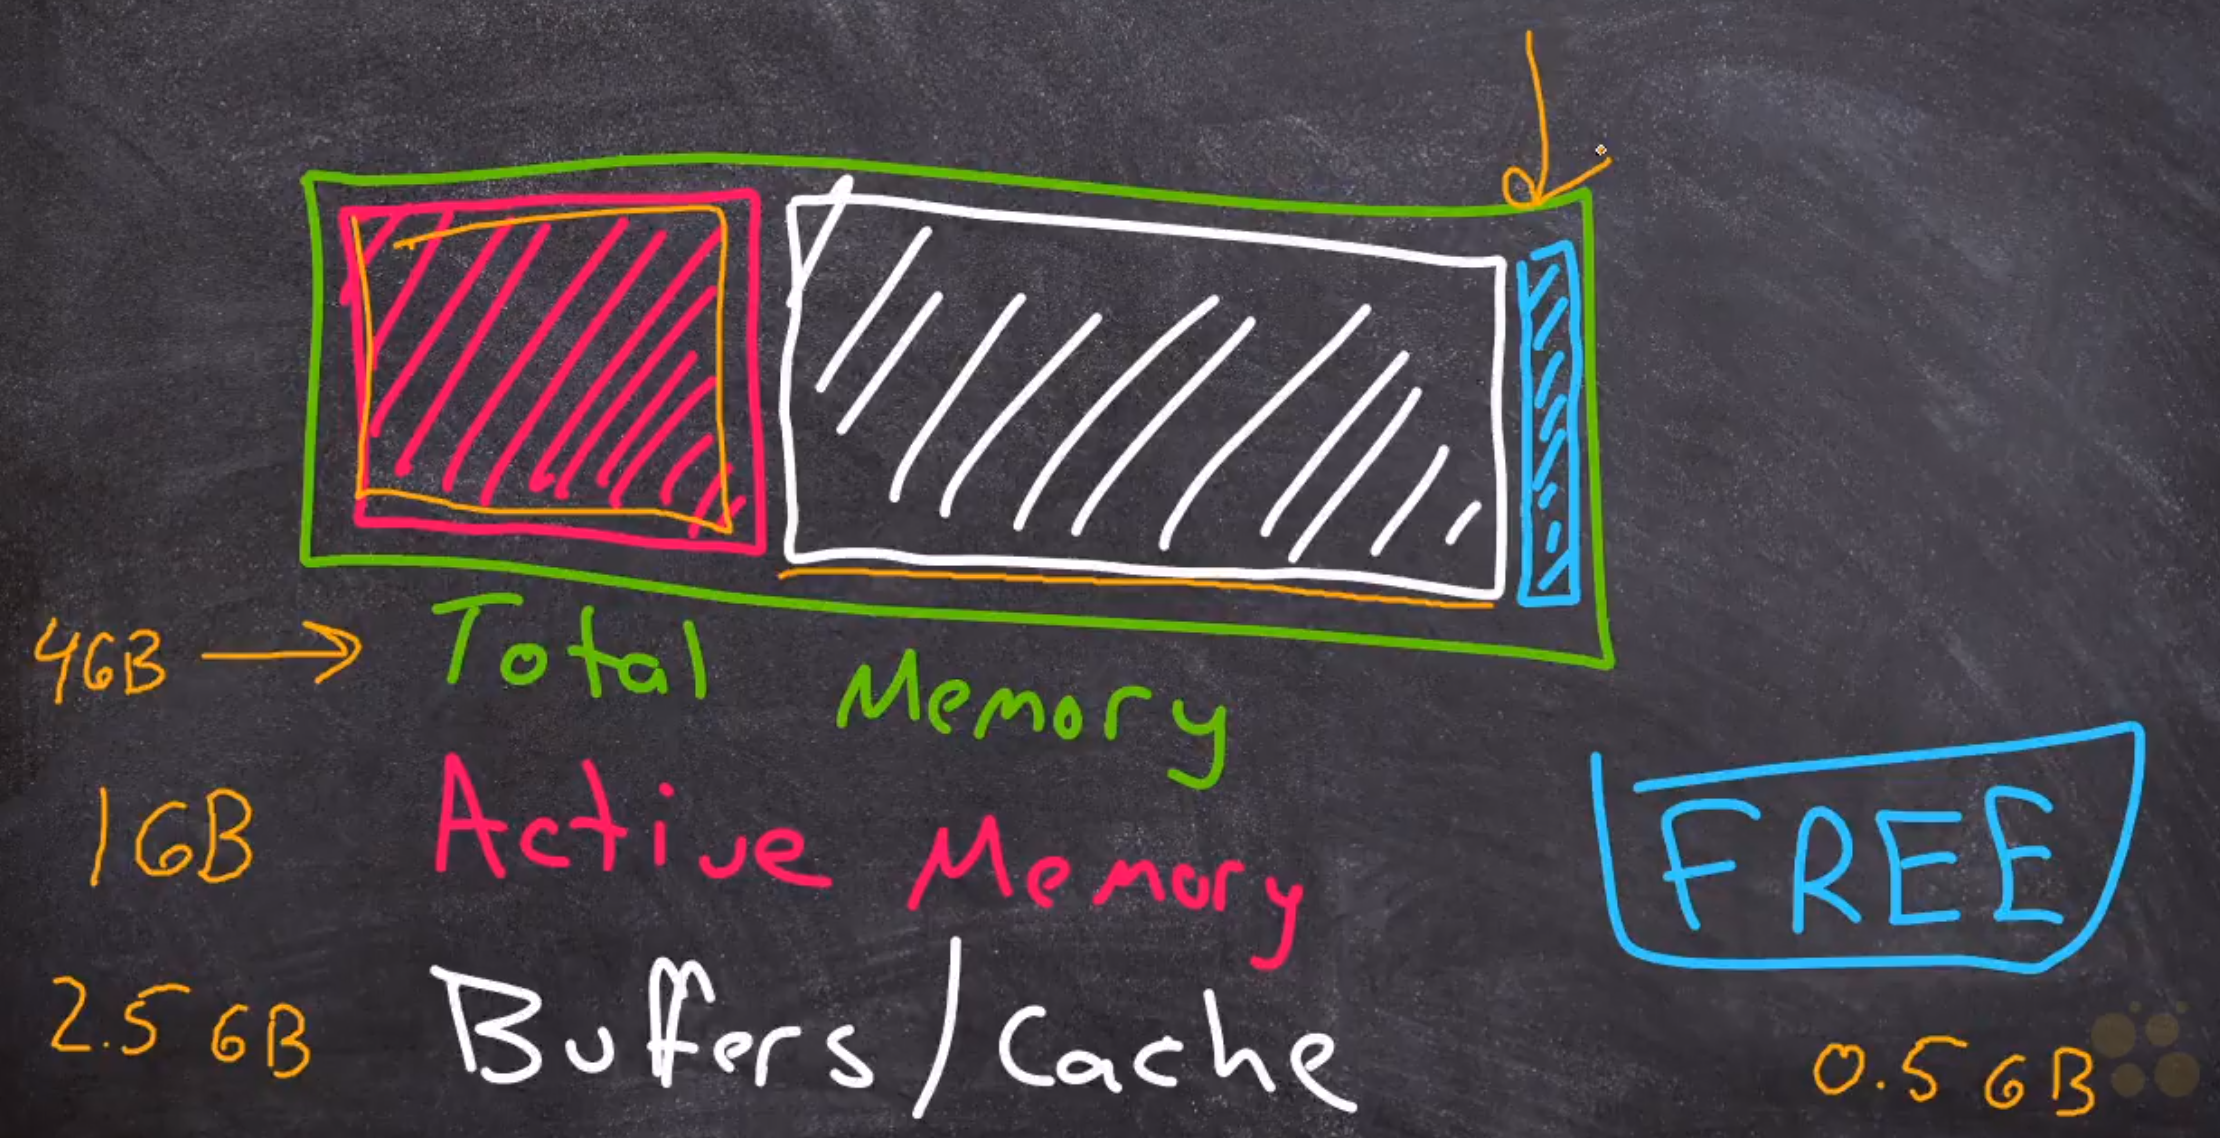 4GB → Total Memory
1GB Active Memory
FREE
2.5 GB Buffers/Cache
0.5 GB